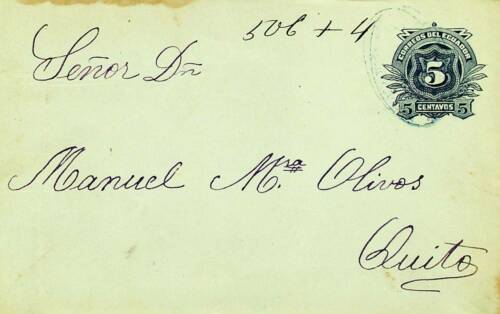 506 + 4
CORREOS DEL ECUADOR
5
5 CENTAVOS 5
Señor Dn
Manuel Ma. Olivos
Quito